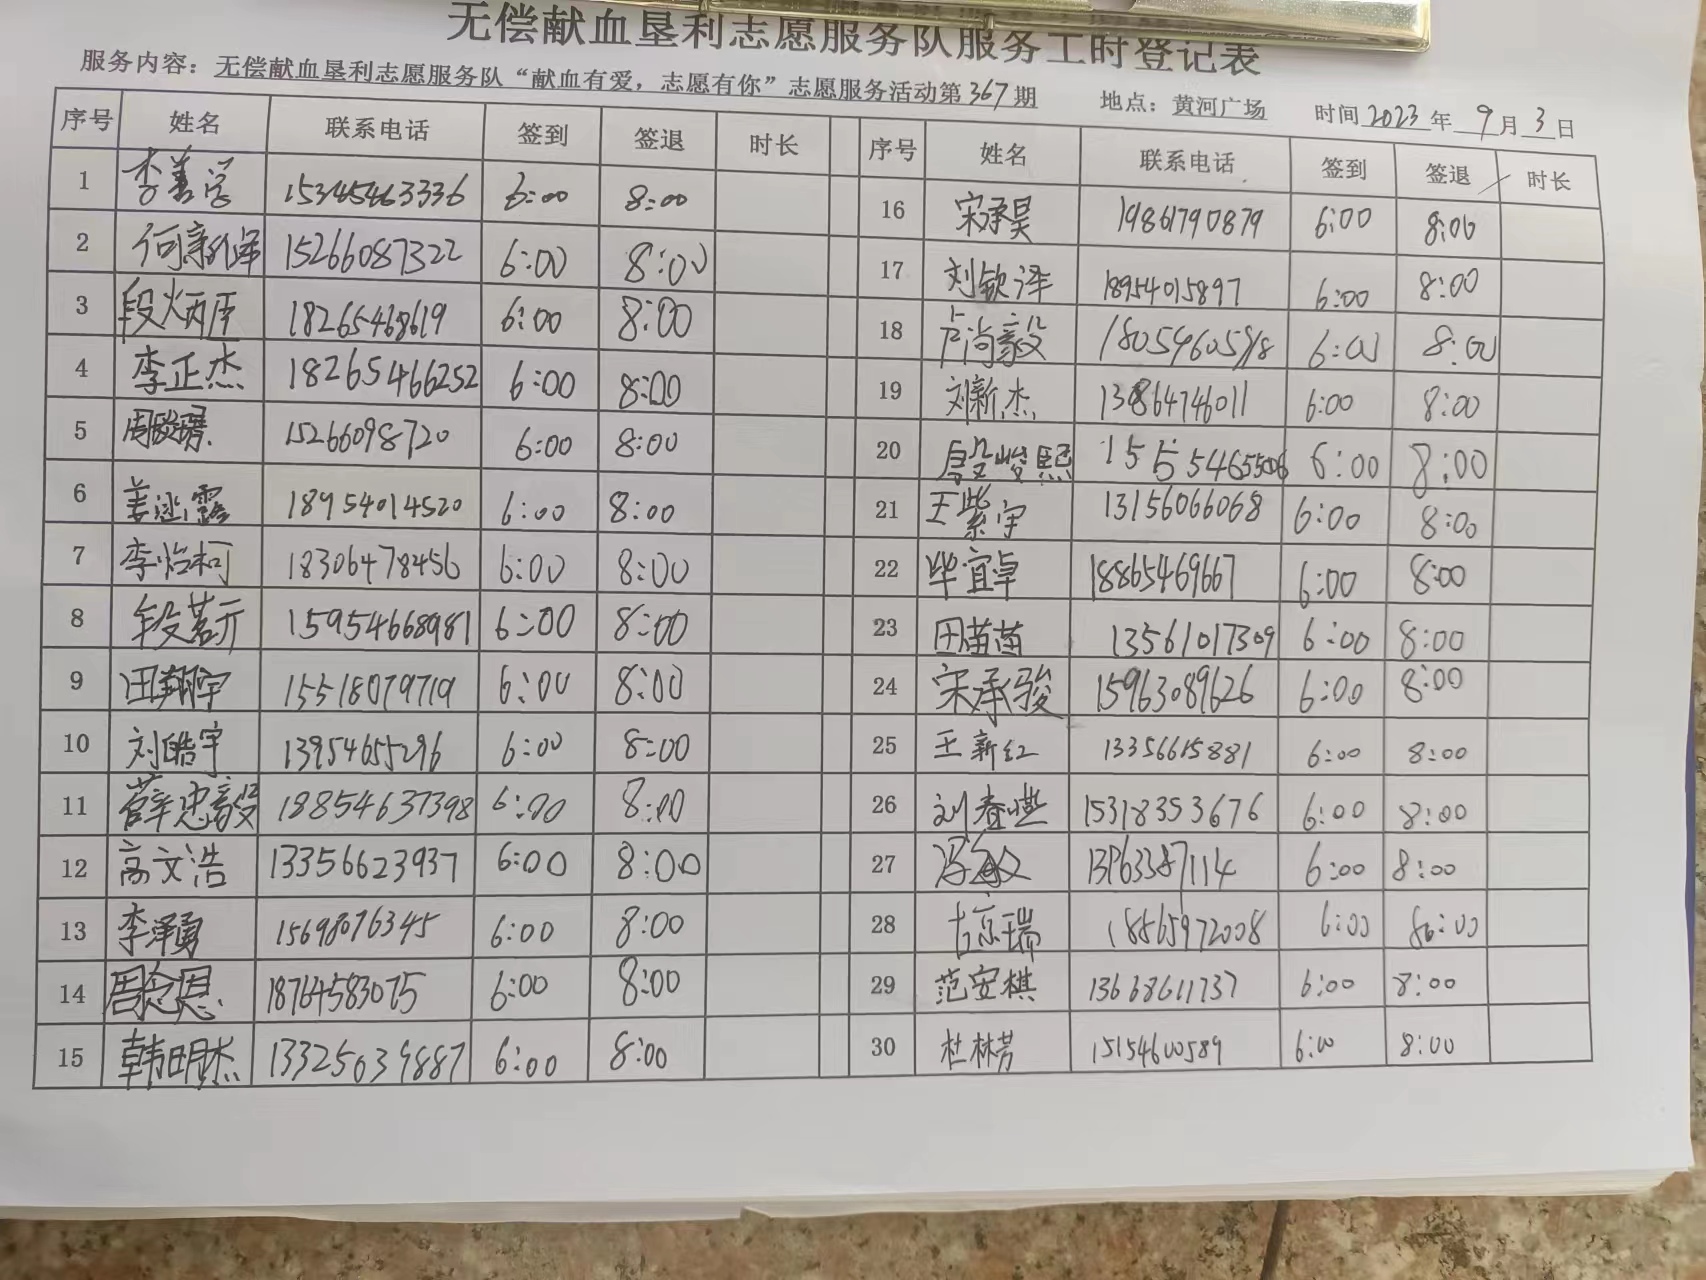 无偿献血垦利志愿服务队服务工时登记表
服务内容：无偿献血垦利志愿服务队“献血有爱，志愿有你”志愿服务活动第367期 地点：黄河广场 时间2023年9月3日
序号 姓名 联系电话 签到 签退 时长 序号 姓名 联系电话 签到 签退 时长
1 李善学 15345463336 6:00 8:00 16 宋承昊 19861790879 6:00 8:00
2 15266087322 6:00 8:00 17 刘钦泽 18954015897 6:00 8:00
3 段炳臣 18265468619 6:00 8:00 18 卢尚毅 6:00 8:00
4 李正杰 18265466252 6:00 8:00 19 刘新杰 13864746011 6:00 8:00
5 15266098720 6:00 8:00 20 唐梓熙 1555465506 6:00 8:00
6 18954014520 6:00 8:00 21 王紫宇 13156066068 6:00 8:00
7 李怡柯 18306478456 6:00 8:00 22 毕宜卓 18865469667 6:00 8:00
8 段茗元 15954668981 6:00 8:00 23 田苗苗 13561017309 6:00 8:00
9 田翔宇 15518079719 6:00 8:00 24 宋承骏 15963089626 6:00 8:00
10 刘皓宇 13954655296 6:00 8:00 25 王新红 13356615881 6:00 8:00
11 薛忠毅 18854637398 6:00 8:00 26 刘春燕 15318353676 6:00 8:00
12 高文浩 13356623937 6:00 8:00 27 6:00 8:00
13 李泽勇 15698076345 6:00 8:00 28 古京瑞 18865972008 6:00 8:00
14 周念恩 18764583075 6:00 8:00 29 范安棋 13668611737 6:00 8:00
15 韩明杰 13325039887 6:00 8:00 30 杜林芳 15154600589 6:00 8:00